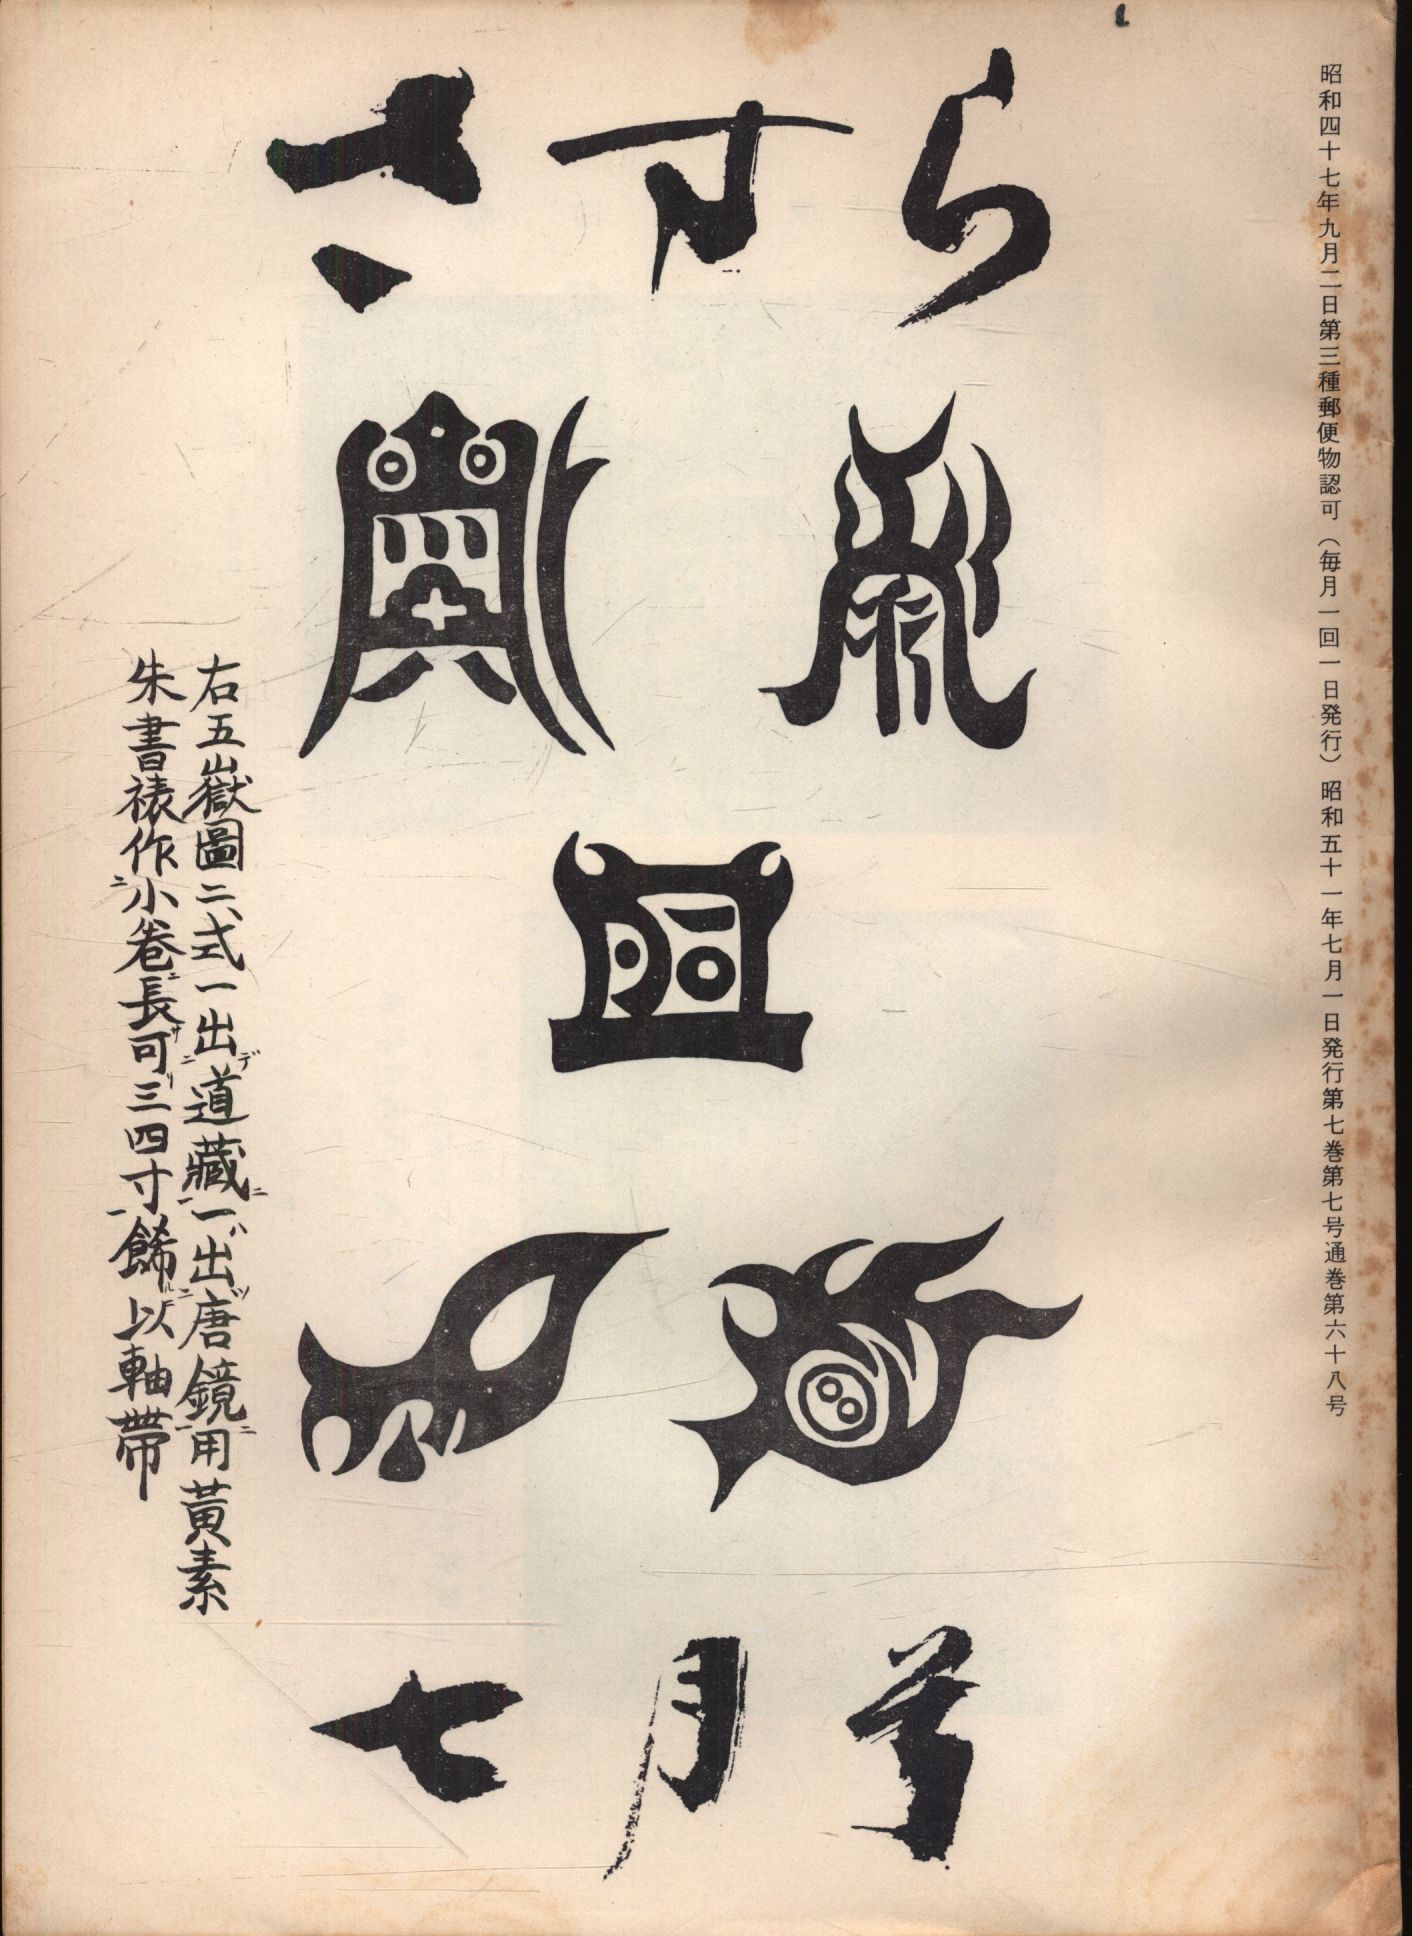 昭和四十七年九月二日第三種郵便物認可(毎月一回一日発行)昭和五十一年七月一日発行第七巻第七号通巻第六十八号
さすら
七月号
右五嶽圖二式一出道藏一出唐鏡用黄素
朱書裱作小巻長可三四寸餙以軸帶